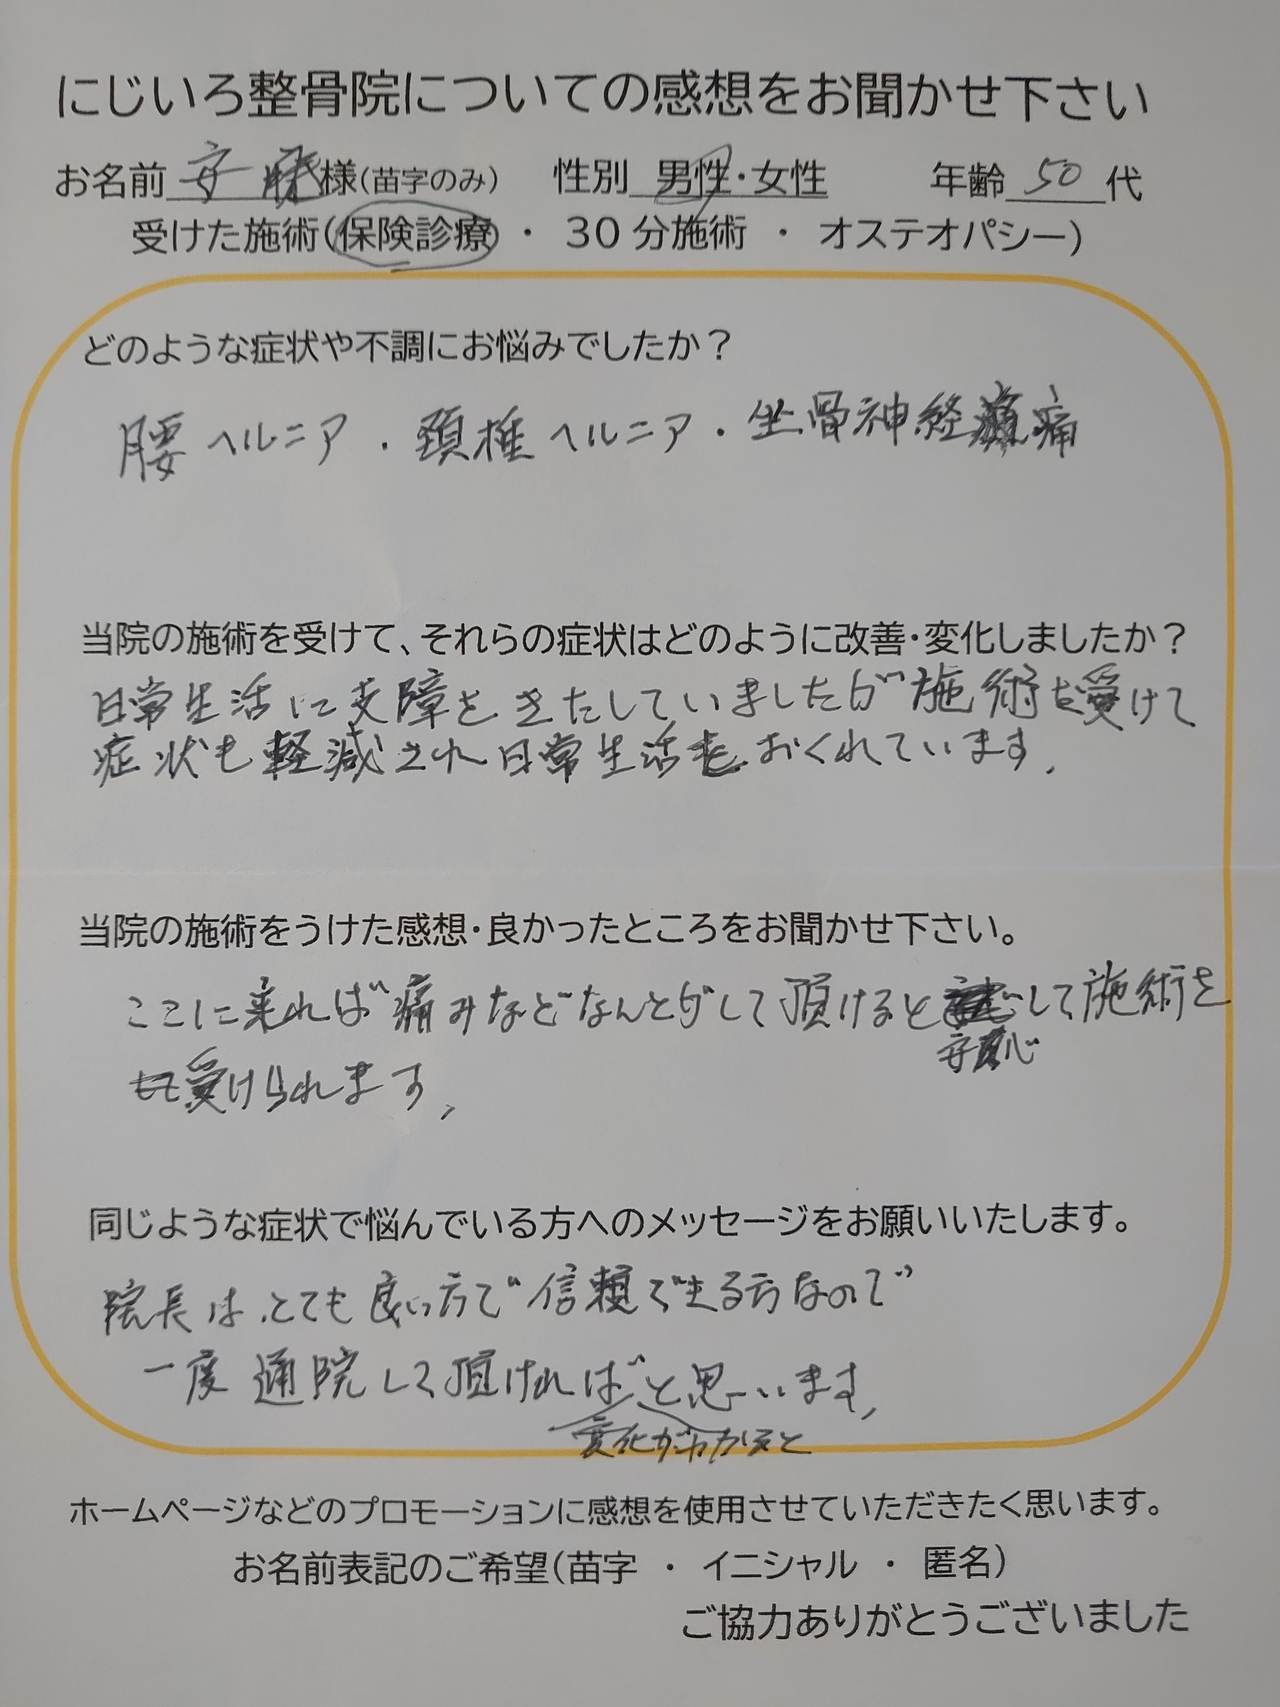 にじいろ整骨院についての感想をお聞かせ下さい
お名前 安 様(苗字のみ) 性別 男性・女性 年齢 50 代
受けた施術(保険診療 ・ 30分施術 ・ オステオパシー)
どのような症状や不調にお悩みでしたか？
腰ヘルニア・頚椎ヘルニア・坐骨神経痛
当院の施術を受けて、それらの症状はどのように改善・変化しましたか？
日常生活に支障をきたしていましたが施術を受けて
症状も軽減され日常生活をおくれています。
当院の施術をうけた感想・良かったところをお聞かせ下さい。
ここに来れば痛みなどなんとかして頂けると して施術を
安心
受けられます。
同じような症状で悩んでいる方へのメッセージをお願いいたします。
院長は、とても良い方で信頼できる方なので
一度通院して頂ければと思います。
変化がわかると
ホームページなどのプロモーションに感想を使用させていただきたく思います。
お名前表記のご希望(苗字 ・ イニシャル ・ 匿名)
ご協力ありがとうございました